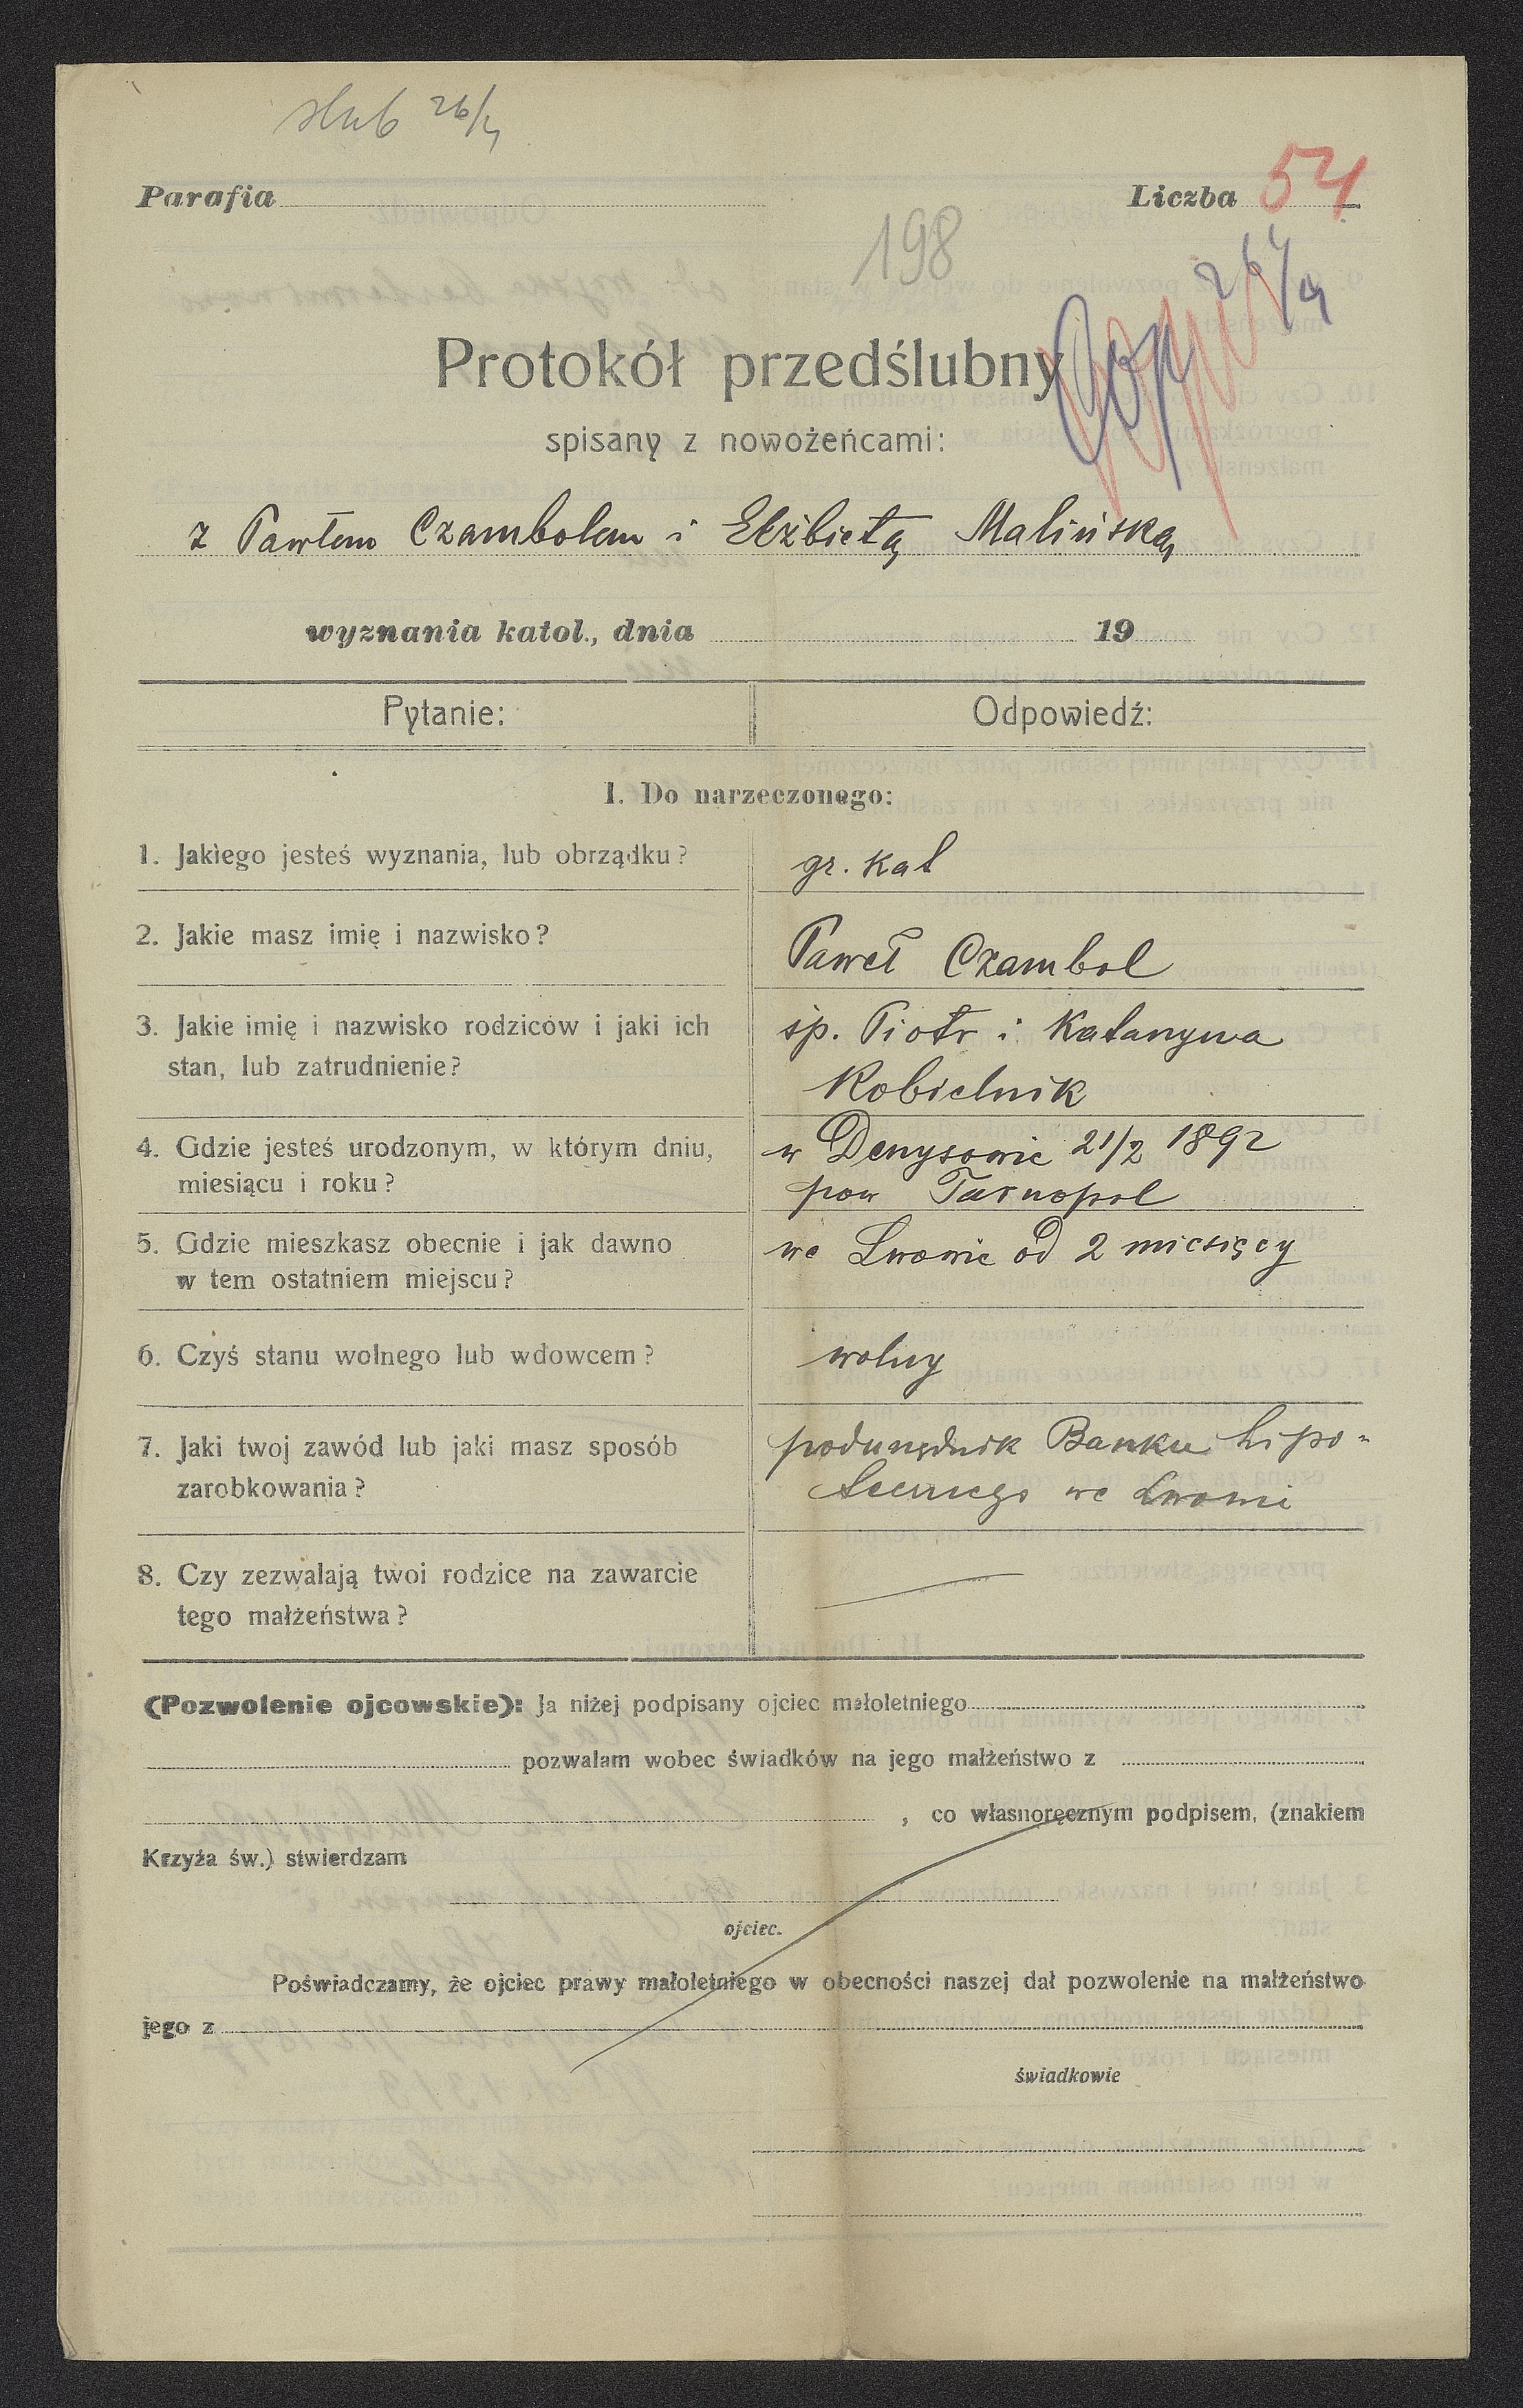 slub 26/4
Parafia
Liczba 54
198
26/4
Protokół przedślubny
spisany z nowożeńcami:
z Pawłem Czambolem i Elżbietą Malińską
wyznania katol., dnia 19
Pytanie:
Odpowiedź:
I. Do narzeczonego:
1. Jakiego jesteś wyznania, lub obrządku?
gr. kat
2. Jakie masz imię i nazwisko?
Paweł Czambol
3. Jakie imię i nazwisko rodziców i jaki ich
stan, lub zatrudnienie?
śp. Piotr i Katarzyna
Kobielnik
4. Gdzie jesteś urodzonym, w którym dniu,
miesiącu i roku?
w Denysowie 21/2 1892
pow Tarnopol
5. Gdzie mieszkasz obecnie i jak dawno
w tem ostatniem miejscu?
we Lwowie od 2 miesięcy
6. Czyś stanu wolnego lub wdowcem?
wolny
7. Jaki twoj zawód lub jaki masz sposób
zarobkowania?
podurzędnik Banku hipo-
tecznego we Lwowie
8. Czy zezwalają twoi rodzice na zawarcie
tego małżeństwa?
(Pozwolenie ojcowskie): Ja niżej podpisany ojciec małoletniego
pozwalam wobec świadków na jego małżeństwo z
, co własnoręcznym podpisem, (znakiem
Krzyża św.) stwierdzam
ojciec.
Poświadczamy, że ojciec prawy małoletniego w obecności naszej dał pozwolenie na małżeństwo
jego z
świadkowie